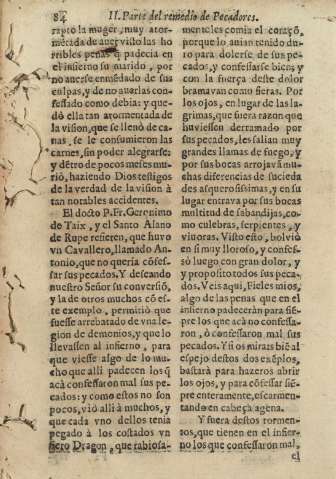 84 II. Parte del remedio de Pecadores.
rapto la muger, muy ator-
mẽtada de auer visto las ho
rribles penas q̃ padecia en
el infierno su marido, por
no auerse enmẽdado de sus
culpas, y de no auerlas con-
fessado como debia: y que-
dò ella tan atormentada de
la vision, que se llenò de ca-
nas, se le consumieron las
carnes, sin poder alegrarse;
y dẽtro de pocos meses mu-
riò, haziendo Dios testigos
de la verdad de la visiòn à
tan notables accidentes.
El docto P. Fr. Geronimo
de Taix, y el Santo Alano
de Rupe refieren, que huvo
vn Cavallero, llamado An-
tonio, que no queria cõfes-
sar sus pecados. Y deseando
nuestro Señor su conversiõ,
y la de otros muchos cõ es-
te exemplo, permitiò que
fuesse arrebatado de vna le-
gion de demonios, y que lo
llevassen al infierno, para
que viesse algo de lo mu-
cho que alli padecen los q̃
acà confessaron mal sus pe-
cados: y como estos no son
pocos, viò alli à muchos, y
que cada vno dellos tenia
pegado à los costados vn
fiero Dragon, que rabiosa-
mente les comia el coraçõ,
porque lo avian tenido du-
ro para dolerse de sus pe-
cados, y confessarse bien; y
con la fuerça deste dolor
bramavan como fieras. Por
los ojos, en lugar de las la-
grimas, que fuera razon que
huviessen derramado por
sus pecados, les salian muy
grandes llamas de fuego, y
por sus bocas arrojavã mu-
chas diferencias de sucieda
des asquerosissimas, y en su
lugar entrava por sus bocas
multitud de sabandijas, co-
mo culebras, serpientes, y
vivoras. Visto esto, bolviò
en sì muy lloroso, y confes-
sò luego con gran dolor, y
y proposito todos sus peca-
dos. Veis aqui, Fieles mios,
algo de las penas que en el
infierno padeceràn para siẽ-
pre los que acà no confessa-
ron, ò confessaron mal sus
pecados. Y si os mirais biẽ al
espejo destos dos exẽplos,
bastarà para hazeros abrir
los ojos, y para cõfessar siẽ-
pre enteramente, escarmen-
tando en cabeça agena.
Y fuera destos tormen-
tos, que tienen en el infier-
no los que confessaron mal,
el